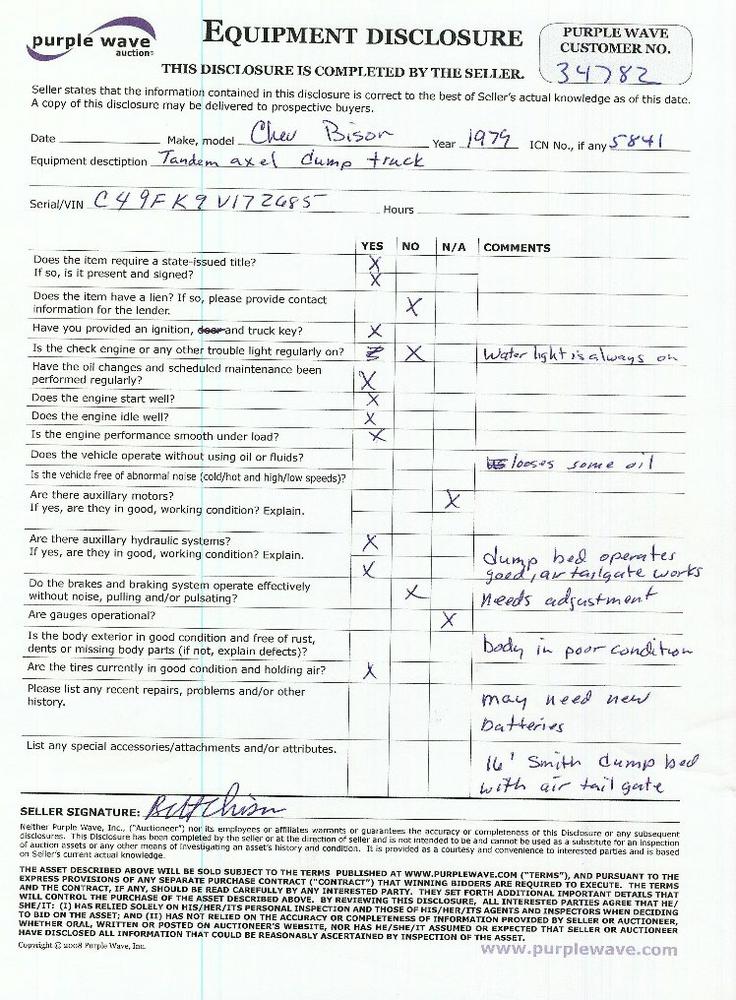 purple wave
auction®
EQUIPMENT DISCLOSURE
PURPLE WAVE
CUSTOMER NO.
34782
THIS DISCLOSURE IS COMPLETED BY THE SELLER.
Seller states that the information contained in this disclosure is correct to the best of Seller's actual knowledge as of this date.
A copy of this disclosure may be delivered to prospective buyers.
Date Make, model Chev Bison Year 1979 ICN No., if any 5841
Equipment desctiption Tandem axel dump truck
Serial/VIN C49FK9V172685 Hours
YES NO N/A COMMENTS
Does the item require a state-issued title? X
If so, is it present and signed? X
Does the item have a lien? If so, please provide contact
information for the lender. X
Have you provided an ignition, door and truck key? X
Is the check engine or any other trouble light regularly on? X Water light is always on
Have the oil changes and scheduled maintenance been
performed regularly? X
Does the engine start well? X
Does the engine idle well? X
Is the engine performance smooth under load? X
Does the vehicle operate without using oil or fluids? looses some oil
Is the vehicle free of abnormal noise (cold/hot and high/low speeds)?
Are there auxillary motors? X
If yes, are they in good, working condition? Explain.
Are there auxillary hydraulic systems? X
If yes, are they in good, working condition? Explain. X dump bed operates
good, air tailgate works
Do the brakes and braking system operate effectively
without noise, pulling and/or pulsating? X needs adjustment
Are gauges operational? X
Is the body exterior in good condition and free of rust,
dents or missing body parts (if not, explain defects)? body in poor condition
Are the tires currently in good condition and holding air? X
Please list any recent repairs, problems and/or other
history. may need new
batteries
List any special accessories/attachments and/or attributes.
16' Smith dump bed
with air tail gate
SELLER SIGNATURE:
Neither Purple Wave, Inc., ("Auctioneer") nor its employees or affiliates warrants or guarantees the accuracy or completeness of this Disclosure or any subsequent
disclosures. This Disclosure has been completed by the seller or at the direction of seller and is not intended to be and cannot be used as a substitute for an inspection
of auction assets or any other means of investigating an asset's history and condition. It is provided as a courtesy and convenience to interested parties and is based
on Seller's current actual knowledge.
THE ASSET DESCRIBED ABOVE WILL BE SOLD SUBJECT TO THE TERMS PUBLISHED AT WWW.PURPLEWAVE.COM ("TERMS"), AND PURSUANT TO THE
EXPRESS PROVISIONS OF ANY SEPARATE PURCHASE CONTRACT ("CONTRACT") THAT WINNING BIDDERS ARE REQUIRED TO EXECUTE. THE TERMS
AND THE CONTRACT, IF ANY, SHOULD BE READ CAREFULLY BY ANY INTERESTED PARTY. THEY SET FORTH ADDITIONAL IMPORTANT DETAILS THAT
WILL CONTROL THE PURCHASE OF THE ASSET DESCRIBED ABOVE. BY REVIEWING THIS DISCLOSURE, ALL INTERESTED PARTIES AGREE THAT HE/
SHE/IT: (I) HAS RELIED SOLELY ON HIS/HER/ITS PERSONAL INSPECTION AND THOSE OF HIS/HER/ITS AGENTS AND INSPECTORS WHEN DECIDING
TO BID ON THE ASSET; AND (II) HAS NOT RELIED ON THE ACCURACY OR COMPLETENESS OF INFORMATION PROVIDED BY SELLER OR AUCTIONEER,
WHETHER ORAL, WRITTEN OR POSTED ON AUCTIONEER'S WEBSITE, NOR HAS HE/SHE/IT ASSUMED OR EXPECTED THAT SELLER OR AUCTIONEER
HAVE DISCLOSED ALL INFORMATION THAT COULD BE REASONABLY ASCERTAINED BY INSPECTION OF THE ASSET.
Copyright © 2008 Purple Wave, Inc.
www.purplewave.com